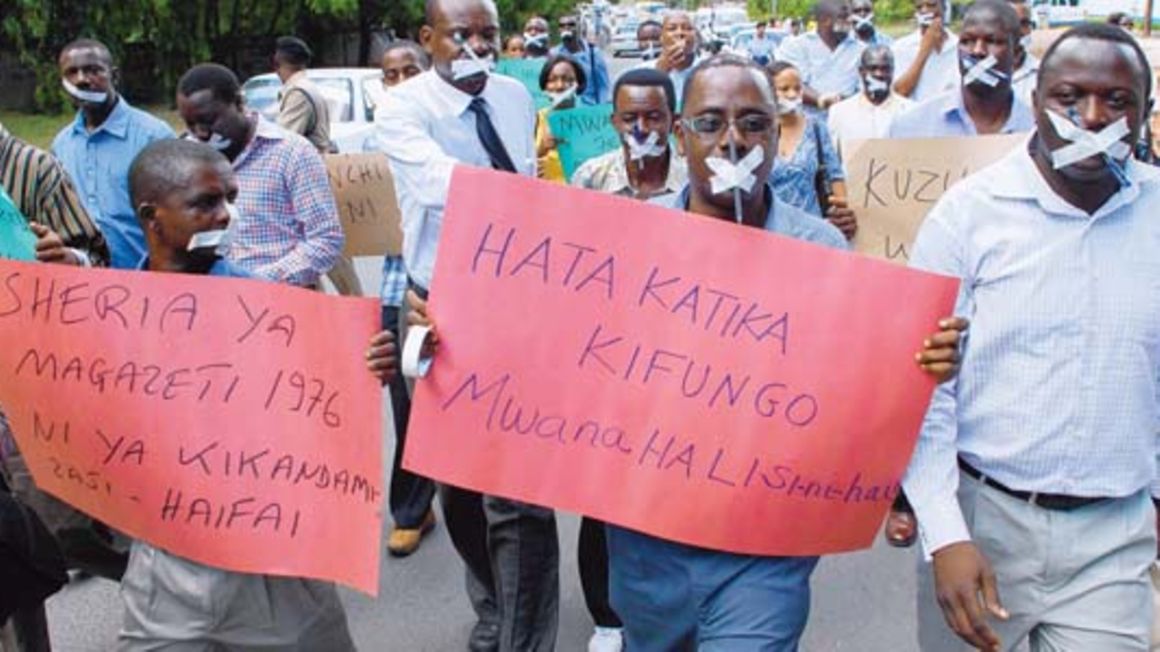 SHERIA YA
MAGAZETI 1976
NI YA KIKANDAMI
ZAJI - HAIFAI
HATA KATIKA
KIFUNGO
MwanaHALISI-ni-hai
NCHI
NI
MWA
KUZU